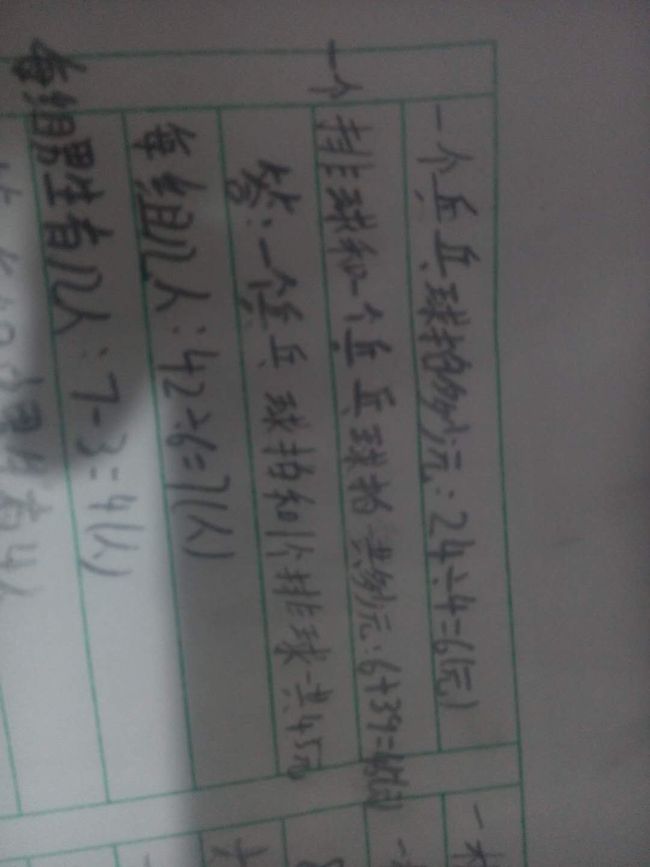 一个乒乓球拍多少元:24÷4=6(元)
一个排球和一个乒乓球拍共多少元:6+39=45(元)
答:一个乒乓球拍和1个排球一共45元
每组几人:42÷6=7(人)
每组男生有几人:7-3=4(人)